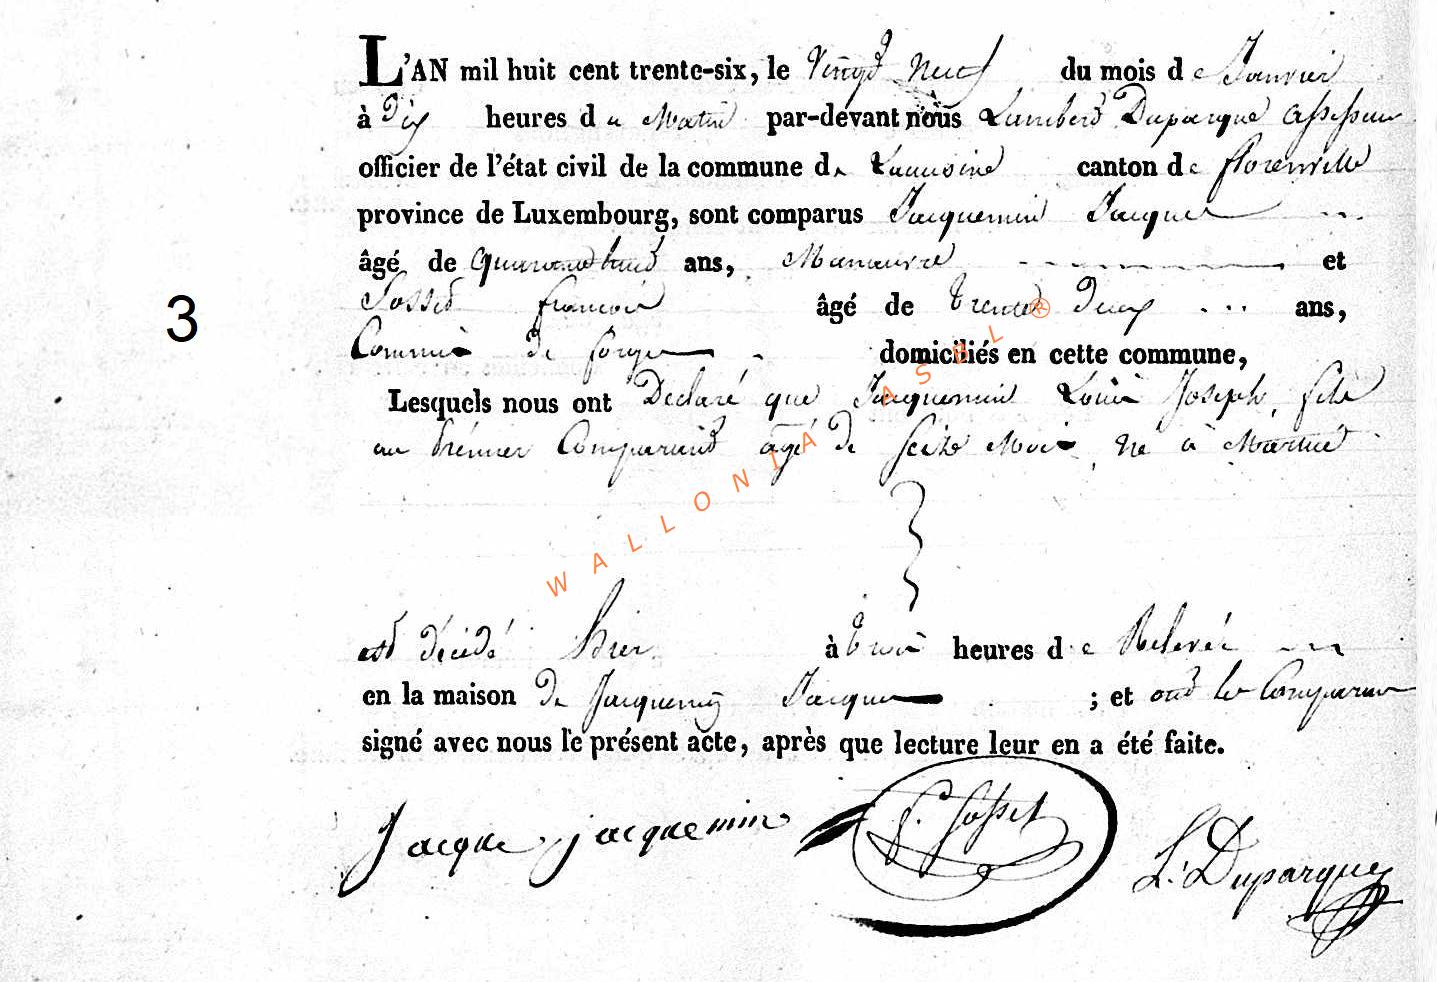 L'AN mil huit cent trente-six, le Vingt Neuf du mois de Janvier
à Dix heures du Matin par-devant nous Lambert Duparque assesseur
officier de l'état civil de la commune de Lacuisine canton de florenville
province de Luxembourg, sont comparus Jacquemin Jacques
âgé de quarante huit ans, Manœuvre et
Sosset françois âgé de trente Deux ans,
3
Commis de forges domiciliés en cette commune,
Lesquels nous ont Déclaré que Jacquemin Louis Joseph, fils
au prémier Comparant agé de seize Mois, né à Martué
est décédé hier à trois heures de Relevée
en la maison de Jacquemin Jacques ; et ont les Comparans
signé avec nous le présent acte, après que lecture leur en a été faite.
Jacque jacquemin f. Sosset L. Duparque
WALLONIA ASBL ®